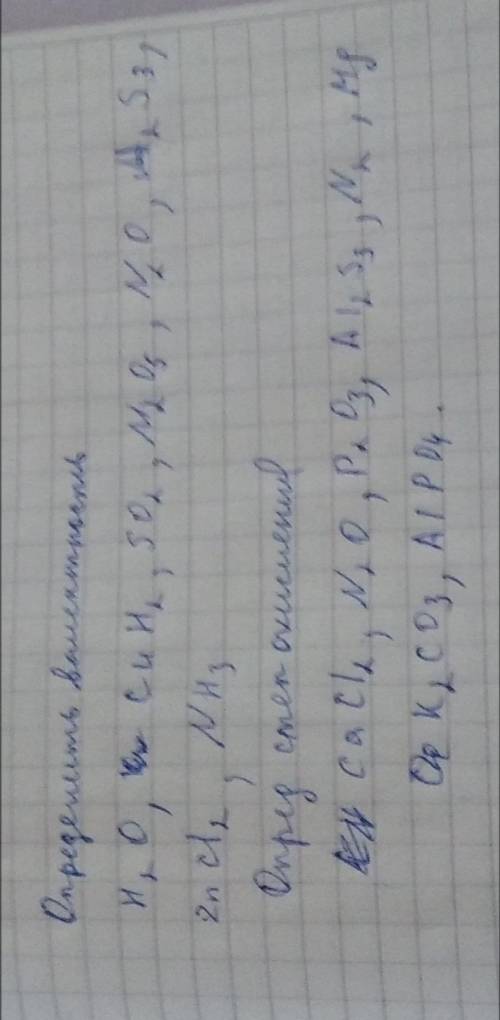 Определить валентность
H2O, CuH2, SO2, N2O3, N2O, Al2S3,
ZnCl2, NH3
Опред степ окисления
CaCl2, N2O, P2O3, Al2S3, N2, Mg
K2CO3, AlPO4.